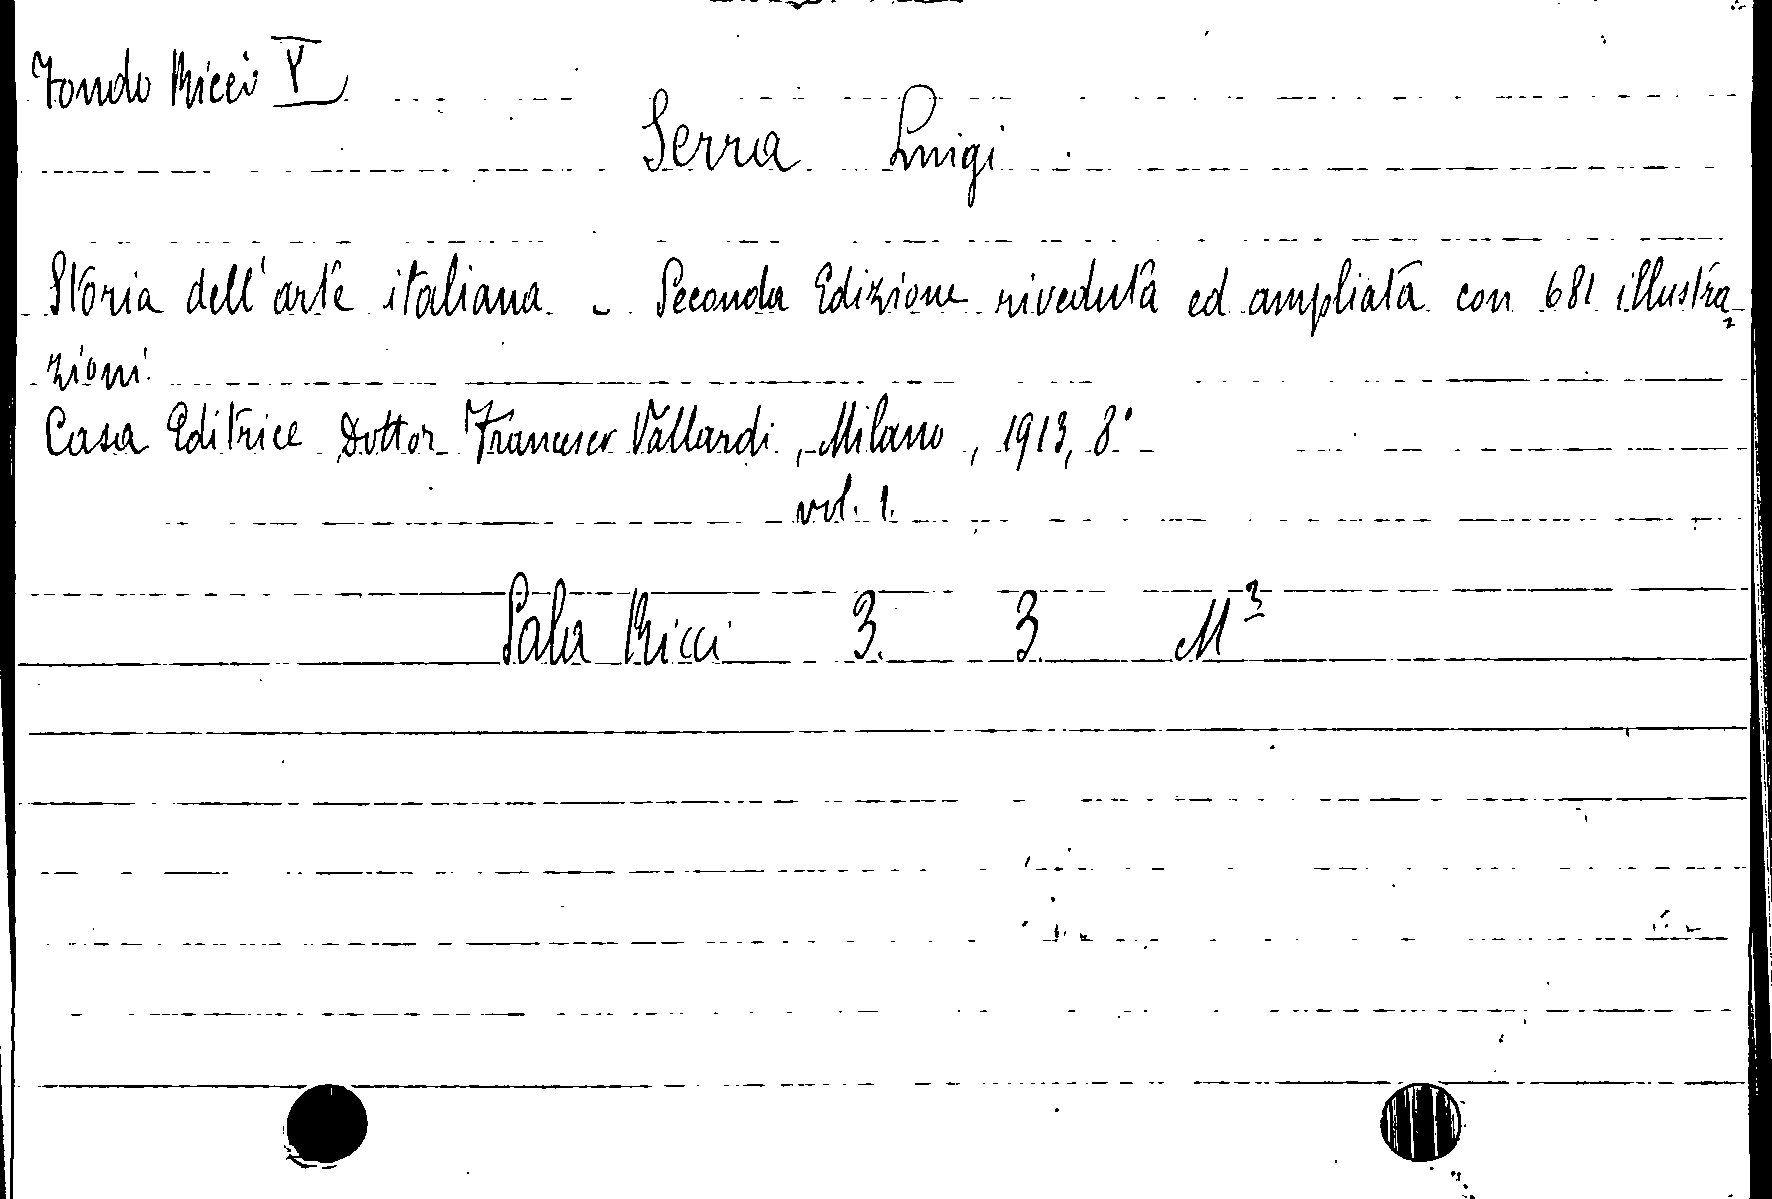 Fondo Ricci V
Serra Luigi
Storia dell'arte italiana - Seconda Edizione riveduta ed ampliata con 681 illustra-
zioni.
Casa Editrice Dottor Francesco Vallardi, Milano, 1913, 8°
vol. 1.
Sala Ricci 3. 3 M³